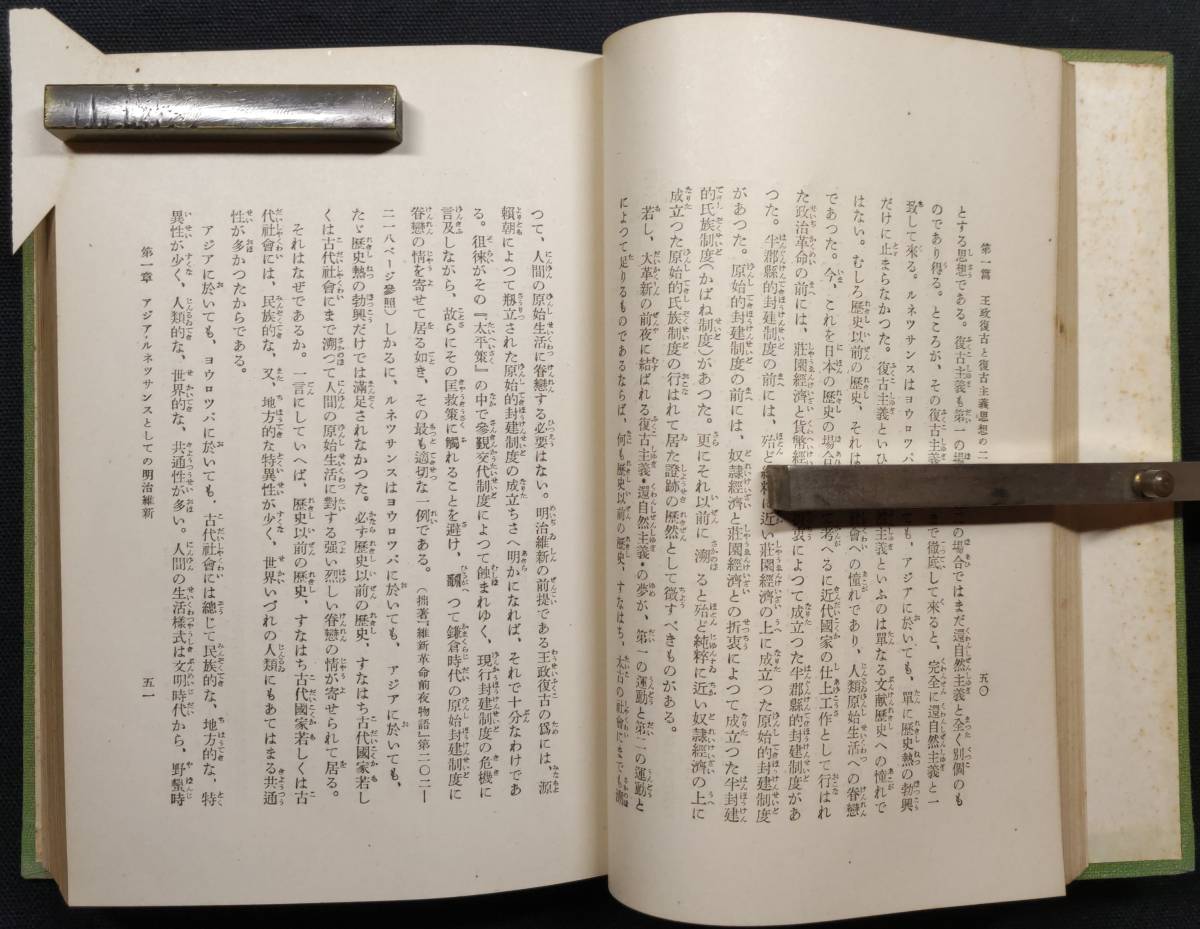 第一篇　王政復古と復古主義思想の二
五〇
とする思想である。復古主義も第一の場
二の場合ではまだ還自然主義と全く別個のも
のであり得る。ところが、その復古主義
まで徹底して來ると、完全に還自然主義と一
致して來る。ルネツサンスはヨウロツパ
ても、アジアに於いても、單に歷史熱の勃興
だけに止まらなかつた。復古主義といひ
主義といふのは單なる文献歷史への憧れで
はない。むしろ歷史以前の歷史、それは
會への憧れであり、人類原始生活への眷戀
であつた。今、これを日本の歷史の場合
考へるに近代國家の仕上工作として行はれ
た政治革命の前には、莊園經濟と貨幣經
衷によつて成立つた半郡縣的封建制度があ
つた。半郡縣的封建制度の前には、殆ど純粹に近い莊園經濟の上に成立つた原始的封建制度
があつた。原始的封建制度の前には、奴隸經濟と莊園經濟との折衷によつて成立つた半封建
的氏族制度（かばね制度）があつた。更にそれ以前に溯ると殆ど純粹に近い奴隸經濟の上に
成立つた原始的氏族制度の行はれて居た證跡の歷然として徵すべきものがある。
若し、大革新の前夜に結ばれる復古主義・還自然主義・の夢が、第一の運動と第二の運動と
によつて足りるものであるならば、何も歷史以前の歷史、すなはち、太古の社會にまでも溯
つて、人間の原始生活に眷戀する必要はない。明治維新の前提である王政復古の爲には、源
賴朝によつて瓶立された原始的封建制度の成立ちさへ明かになれば、それで十分なわけであ
る。徂徠がその『太平策』の中で參覲交代制度によつて蝕まれゆく、現行封建制度の危機に
言及しながら、故らにその匡救策に觸れることを避け、飜つて鎌倉時代の原始封建制度に
眷戀の情を寄せて居る如き、その最も適切な一例である。（拙著『維新革命前夜物語』第二〇二ー
二一八ページ參照）しかるに、ルネツサンスはヨウロツパに於いても、アジアに於いても、
たゞ歷史熱の勃興だけでは滿足されなかつた。必ず歷史以前の歷史、すなはち古代國家若し
くは古代社會にまで溯つて人間の原始生活に對する强い烈しい眷戀の情が寄せられて居る。
それはなぜであるか。一言にしていへば、歷史以前の歷史、すなはち古代國家若しくは古
代社會には、民族的な、又、地方的な特異性が少く、世界いづれの人類にもあてはまる共通
性が多かつたからである。
アジアに於いても、ヨウロツパに於いても、古代社會には總じて民族的な、地方的な、特
異性が少く、人類的な、世界的な、共通性が多い。人間の生活樣式は文明時代から、野蠻時
第一章　アジア・ルネツサンスとしての明治維新
五一